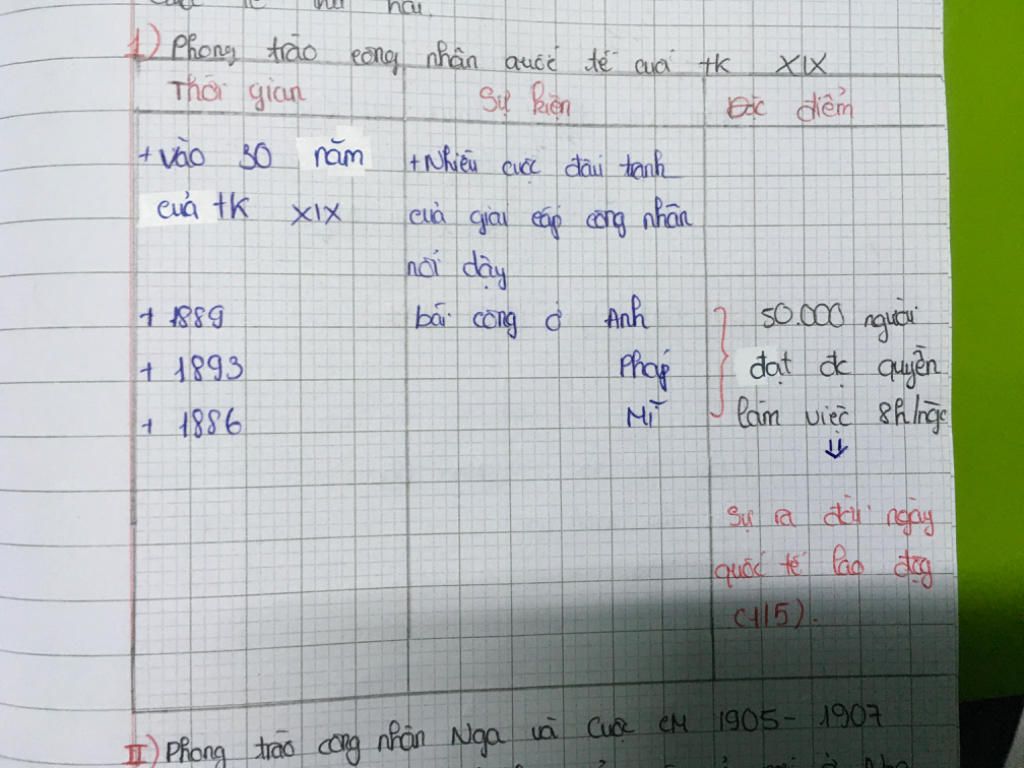 1) Phong trào công nhân quốc tế cuối tk XIX
Thời gian
Sự kiện
Đặc điểm
+ Vào 30 năm
cuả tk XIX
+ Nhiều cuộc đấu tranh
cuả giai cấp công nhân
nổi dậy
+ 1889
bãi công ở Anh
50.000 người
+ 1893
Pháp
đạt đc quyền
+ 1886
Mĩ
làm việc 8h/ngày
⇓
Sự ra đời ngày
quốc tế lao động
(1/5).
II) Phong trào công nhân Nga và Cuộc CM 1905 - 1907